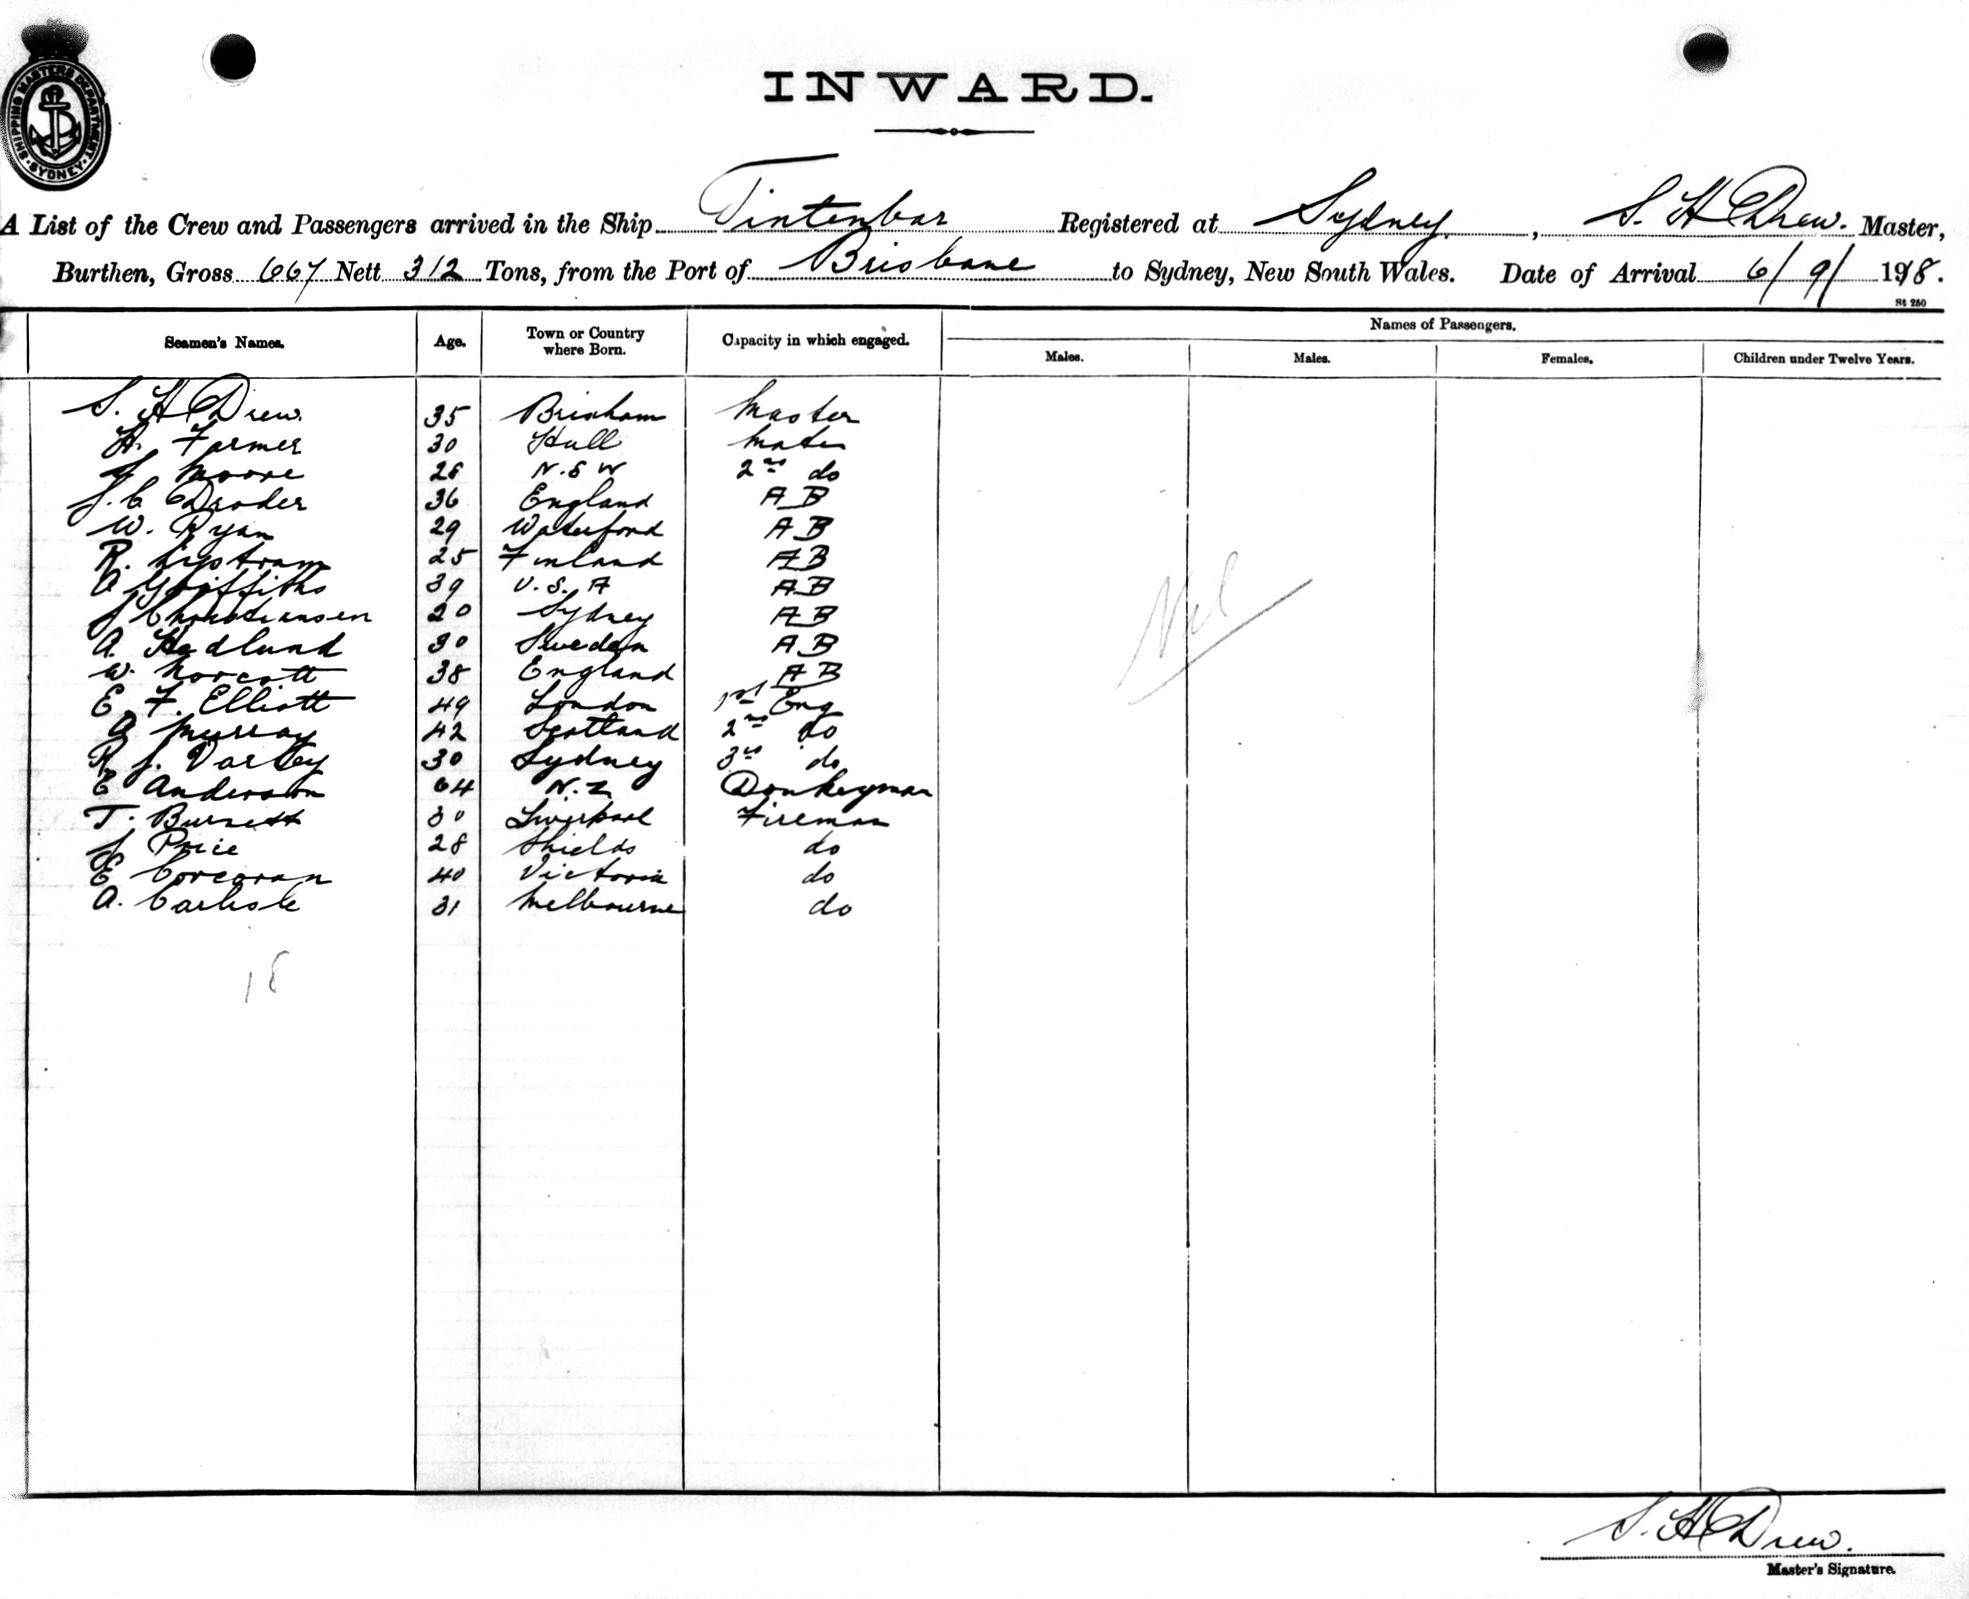 SHIPPING MASTERS DEPARTMENT
SYDNEY
INWARD.
A List of the Crew and Passengers arrived in the Ship Tintenbar Registered at Sydney, S. H Drew. Master,
Burthen, Gross 667 Nett 312 Tons, from the Port of Brisbane to Sydney, New South Wales. Date of Arrival 6/9/1918.
St 250
Seamen's Names. Age. Town or Country where Born. Capacity in which engaged. Names of Passengers.
Males. Males. Females. Children under Twelve Years.
S. H Drew. 35 Brixham Master
H. Farmer 30 Hull Mate
Moore 28 N.S W 2nd do
J. C Droder 36 England A B
W. Ryan 29 Waterford A B
R. Lystrom 25 Finland A B
A Griffiths 39 U.S.A A B
J Christiansen 20 Sydney A B
A. Hedlund 30 Sweden A B
W. Norcott 38 England A B
E. F. Elliott 49 London 1st Eng
A Murray 42 Scotland 2nd do
R J. Varley 30 Sydney 3rd do
E Anderson 64 N.Z Donkeyman
T. Burnett 30 Liverpool Fireman
J Price 28 Shields do
E Corcoran 40 Victoria do
A. Carlisle 31 Melbourne do
Nil
18
S. H Drew.
Master's Signature.